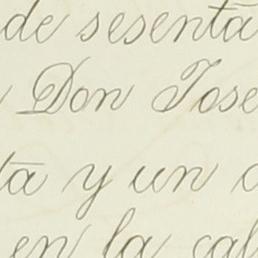 de sesenta
Don Jose
ta y un
en la cal